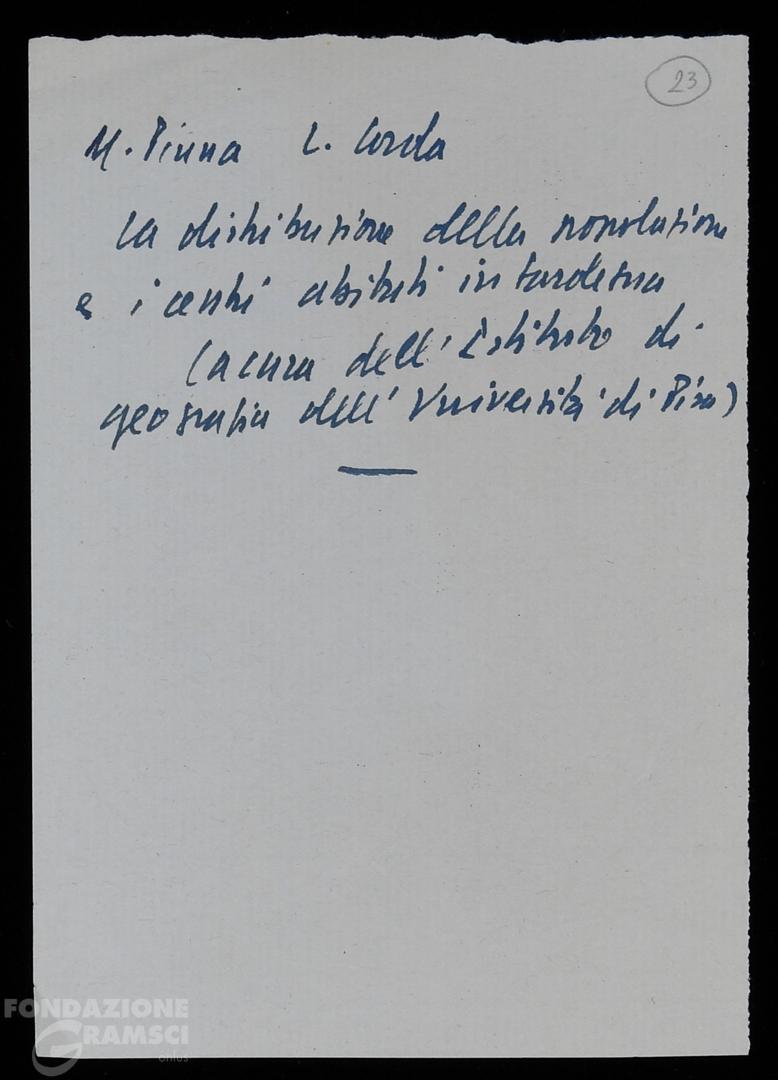 23
M. Pinna L. Corda
La distribuzione della popolazione
e i centri abitati in Sardegna
(a cura dell'Istituto di
geografia dell'Università di Pisa)
FONDAZIONE
GRAMSCI
onlus